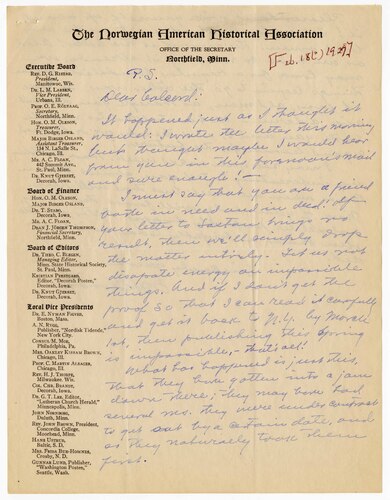 The Norwegian American Historical Association
OFFICE OF THE SECRETARY
Northfield, Minn.
[Feb. 18(?) 1929]
Executive Board
REV. D. G. RISTAD,
President,
Manitowoc, Wis.
DR. L. M. LARSEN,
Vice President,
Urbana, Ill.
PROF. O. E. RÖLVAAG,
Secretary,
Northfield, Minn.
HON. O. M. OLESON,
Treasurer,
Ft. Dodge, Iowa.
MAJOR BIRGER OSLAND,
Assistant Treasurer,
134 N. LaSalle St.,
Chicago, Ill.
MR. A. C. FLOAN,
St. Paul, Minn.
DR. KNUT GJERSET,
Decorah, Iowa.
Board of Finance
HON. O. M. OLESON,
MAJOR BIRGER OSLAND,
DR. T. STABO,
Decorah, Iowa.
MR. A. C. FLOAN,
DEAN J. JÖRGEN THOMPSON,
Financial Secretary,
Northfield, Minn.
Board of Editors
DR. THEO. C. BLEGEN,
Managing Editor,
Minn. State Historical Society,
St. Paul, Minn.
KRISTIAN PRESTGARD,
Editor, "Decorah Posten,"
Decorah, Iowa.
DR. KNUT GJERSET,
Decorah, Iowa.
Local Vice Presidents
DR. E. NYMAN FIGVED,
Boston, Mass.
A. N. RYGG,
Publisher, "Nordisk Tidende,"
New York City.
Philadelphia, Pa.
MRS. OAKLEY KISSAM BROWN,
Chicago, Ill.
PROF. C. MARTIN ALSAGER,
Chicago, Ill.
REV. H. J. THORPE,
Milwaukee, Wis.
COL. CHR. BRANDT,
Decorah, Iowa.
DR. G. T. LEE, Editor,
"Lutheran Church Herald,"
Minneapolis, Minn.
Duluth, Minn.
REV. JOHN BROWN, President,
Concordia College,
Moorhead, Minn.
HANS USTRUD,
Baltic, S. D.
MRS. FRIDA BUE-HOMNES,
Crosby, N. D.
GUNNAR LUND, Publisher,
"Washington Posten,"
Seattle, Wash.
P. S.
Dear Colcord:
It happened just as I thought it
would: I wrote the letter this morning
but thought maybe I would hear
from you in this forenoon's mail
and sure enough! —
I must say that you are a friend
both in need and in deed! If
your letter to Saxton brings no
result, then we'll simply drop
the matter entirely. Let us not
dissipate energy on impossible
things. And if I can't get the
proof so that I can read it carefully
and get it back to N.Y. by March
1st, then publishing this spring
is impossible, — that's all!
What has happened is just this,
that they have gotten into a jam
down there; they may have had
several ms. they were under contract
to get out by a certain date, and
as they naturally took them
first.